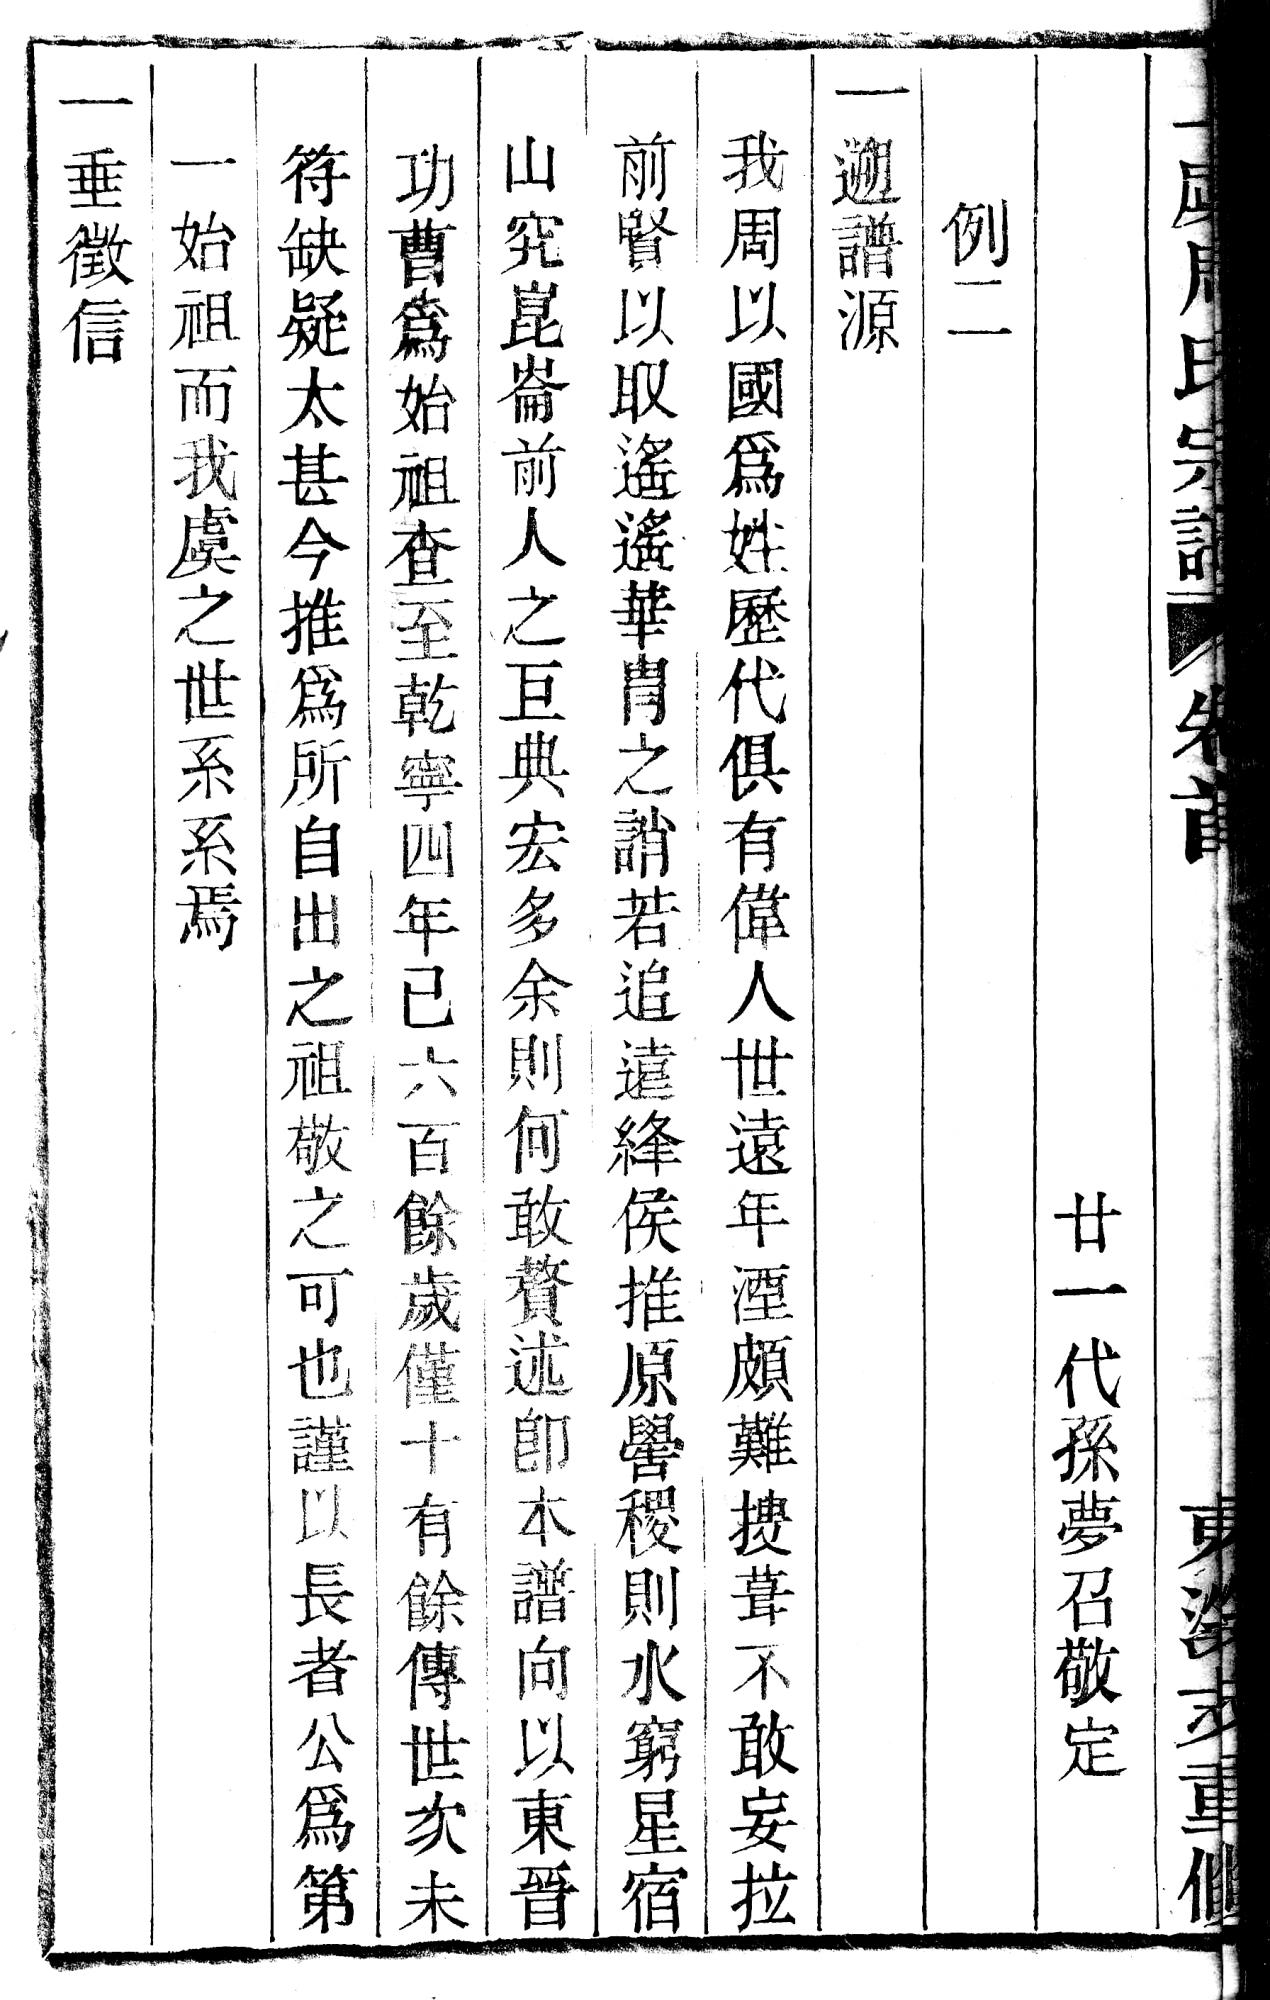 虞周氏宗譜 卷首 重修
廿一代孫夢召敬定
例二
一遡譜源
我周以國爲姓歷代俱有偉人世遠年湮頗難搜葺不敢妄拉
前賢以取遙遙華胄之誚若追遠絳侯推原嚳稷則水窮星宿
山究崑崙前人之巨典宏多余則何敢贅述卽本譜向以東晉
功曹爲始祖查至乾寧四年已六百餘歲僅十有餘傳世次未
符缺疑太甚今推爲所自出之祖敬之可也謹以長者公爲第
一始祖而我虞之世系系焉
一垂徵信